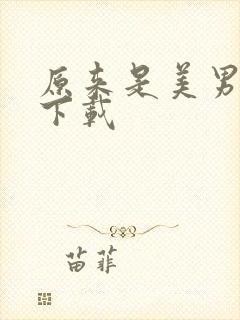 原来是美男
下载
苗菲